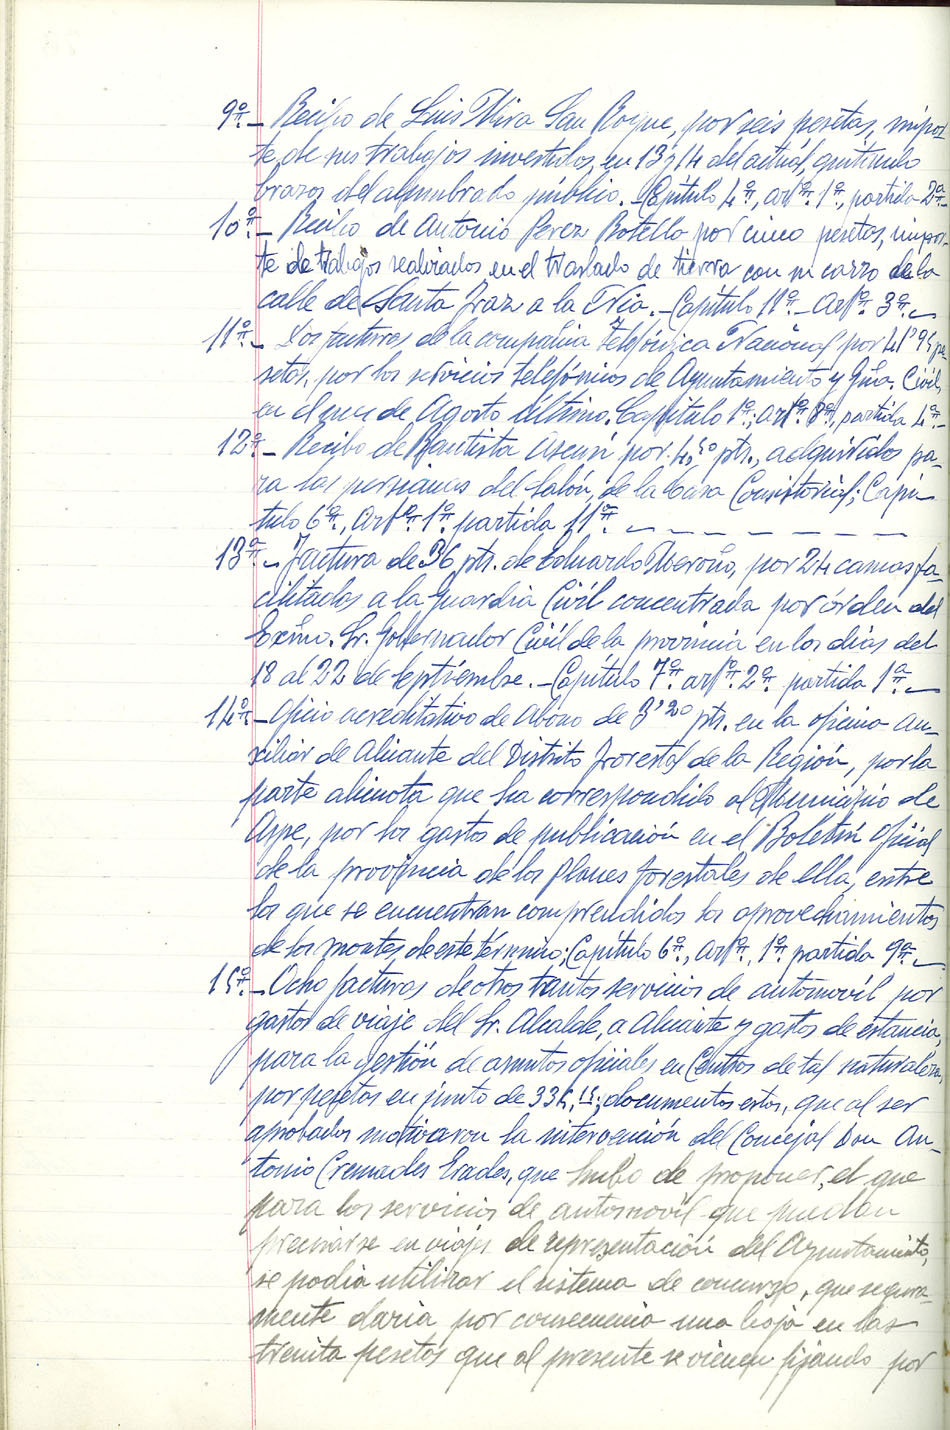 9º.- Recibo de Luis Mira San Roque, por seis pesetas, impor-
te, de sus trabajos invertidos, en 13 y 14 del actual, quitando
brazos del alumbrado público. Capítulo 4º, artº. 1º, partida 2ª.-
10º.- Recibo de Antonio Perez Botello por cinco pesetas, impor-
te de trabajos realizados en el traslado de tierra con su carro de la
calle de Santa Faz a la Via.- Capítulo 11º.- Artº. 3º.-
11º.- Dos facturas de la compañia Telefónica Nacional por 41'95 pe-
setas, por los servicios telefónicos de Ayuntamiento y Gña. Civil,
en el mes de Agosto último. Capítulo 1º; artº. 8º, partida 4ª.-
12º.- Recibo de Bautista Asensi por 4,50 pts., adquiridos pa-
ra las persianas del Salón, de la Casa Consistorial; Capi-
tulo 6º, Artº. 1º. partida 11ª. - - - - - -
13º.- Factura de 36 pts. de Eduardo por 24 camas fa-
cilitadas a la Guardia Civil concentrada por órden del
Excmo. Sr. Gobernador Civil de la provincia en los dias del
18 al 22 de Septiembre.- Capítulo 7º. artº. 2º. partida 1ª.-
14º.- Oficio acreditativo de abono de 3'20 pts. en la oficina au-
xiliar de Alicante del Distrito Forestal de la Región, por la
parte alicuota que ha correspondido al Municipio de
Aspe, por los gastos de publicación en el Boletin Oficial
de la provincia de los planes forestales de ella, entre
los que se encuentran comprendidos los aprovechamientos
de los montes de este término; Capítulo 6º, artº, 1º. partida 9ª.-
15º.- Ocho facturas de otros tantos servicios de automovil por
gastos de viaje del Sr. Alcalde, a Alicante y gastos de estancia,
para la gestión de asuntos oficiales en Centros de tal naturaleza
por pesetas en junto de 334,15; documentos estos, que al ser
aprobados motivaron la intervención del Concejal Don An-
tonio Cremades Erades, que hubo de proponer, el que
para los servicios de automovil que puedan
precisarse en viajes de representación del Ayuntamiento,
se podia utilizar el sistema de concurso, que segura-
mente daria por consecuencia una baja en las
treinta pesetas que al presente se vienen fijando por